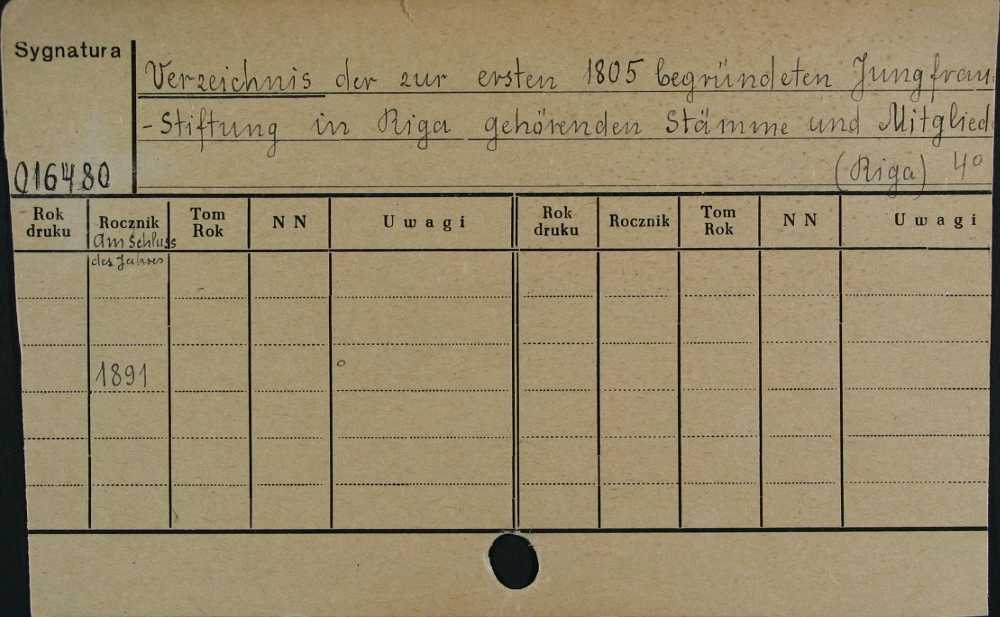 Sygnatura
Verzeichnis der zur ersten 1805 begründeten Jungfrau
-Stiftung in Riga gehörenden Stämme und Mitglied
016480
(Riga) 4°
Rok druku Rocznik Tom Rok N N Uwagi Rok druku Rocznik Tom Rok N N Uwagi
am Schluss
des Jahres
1891